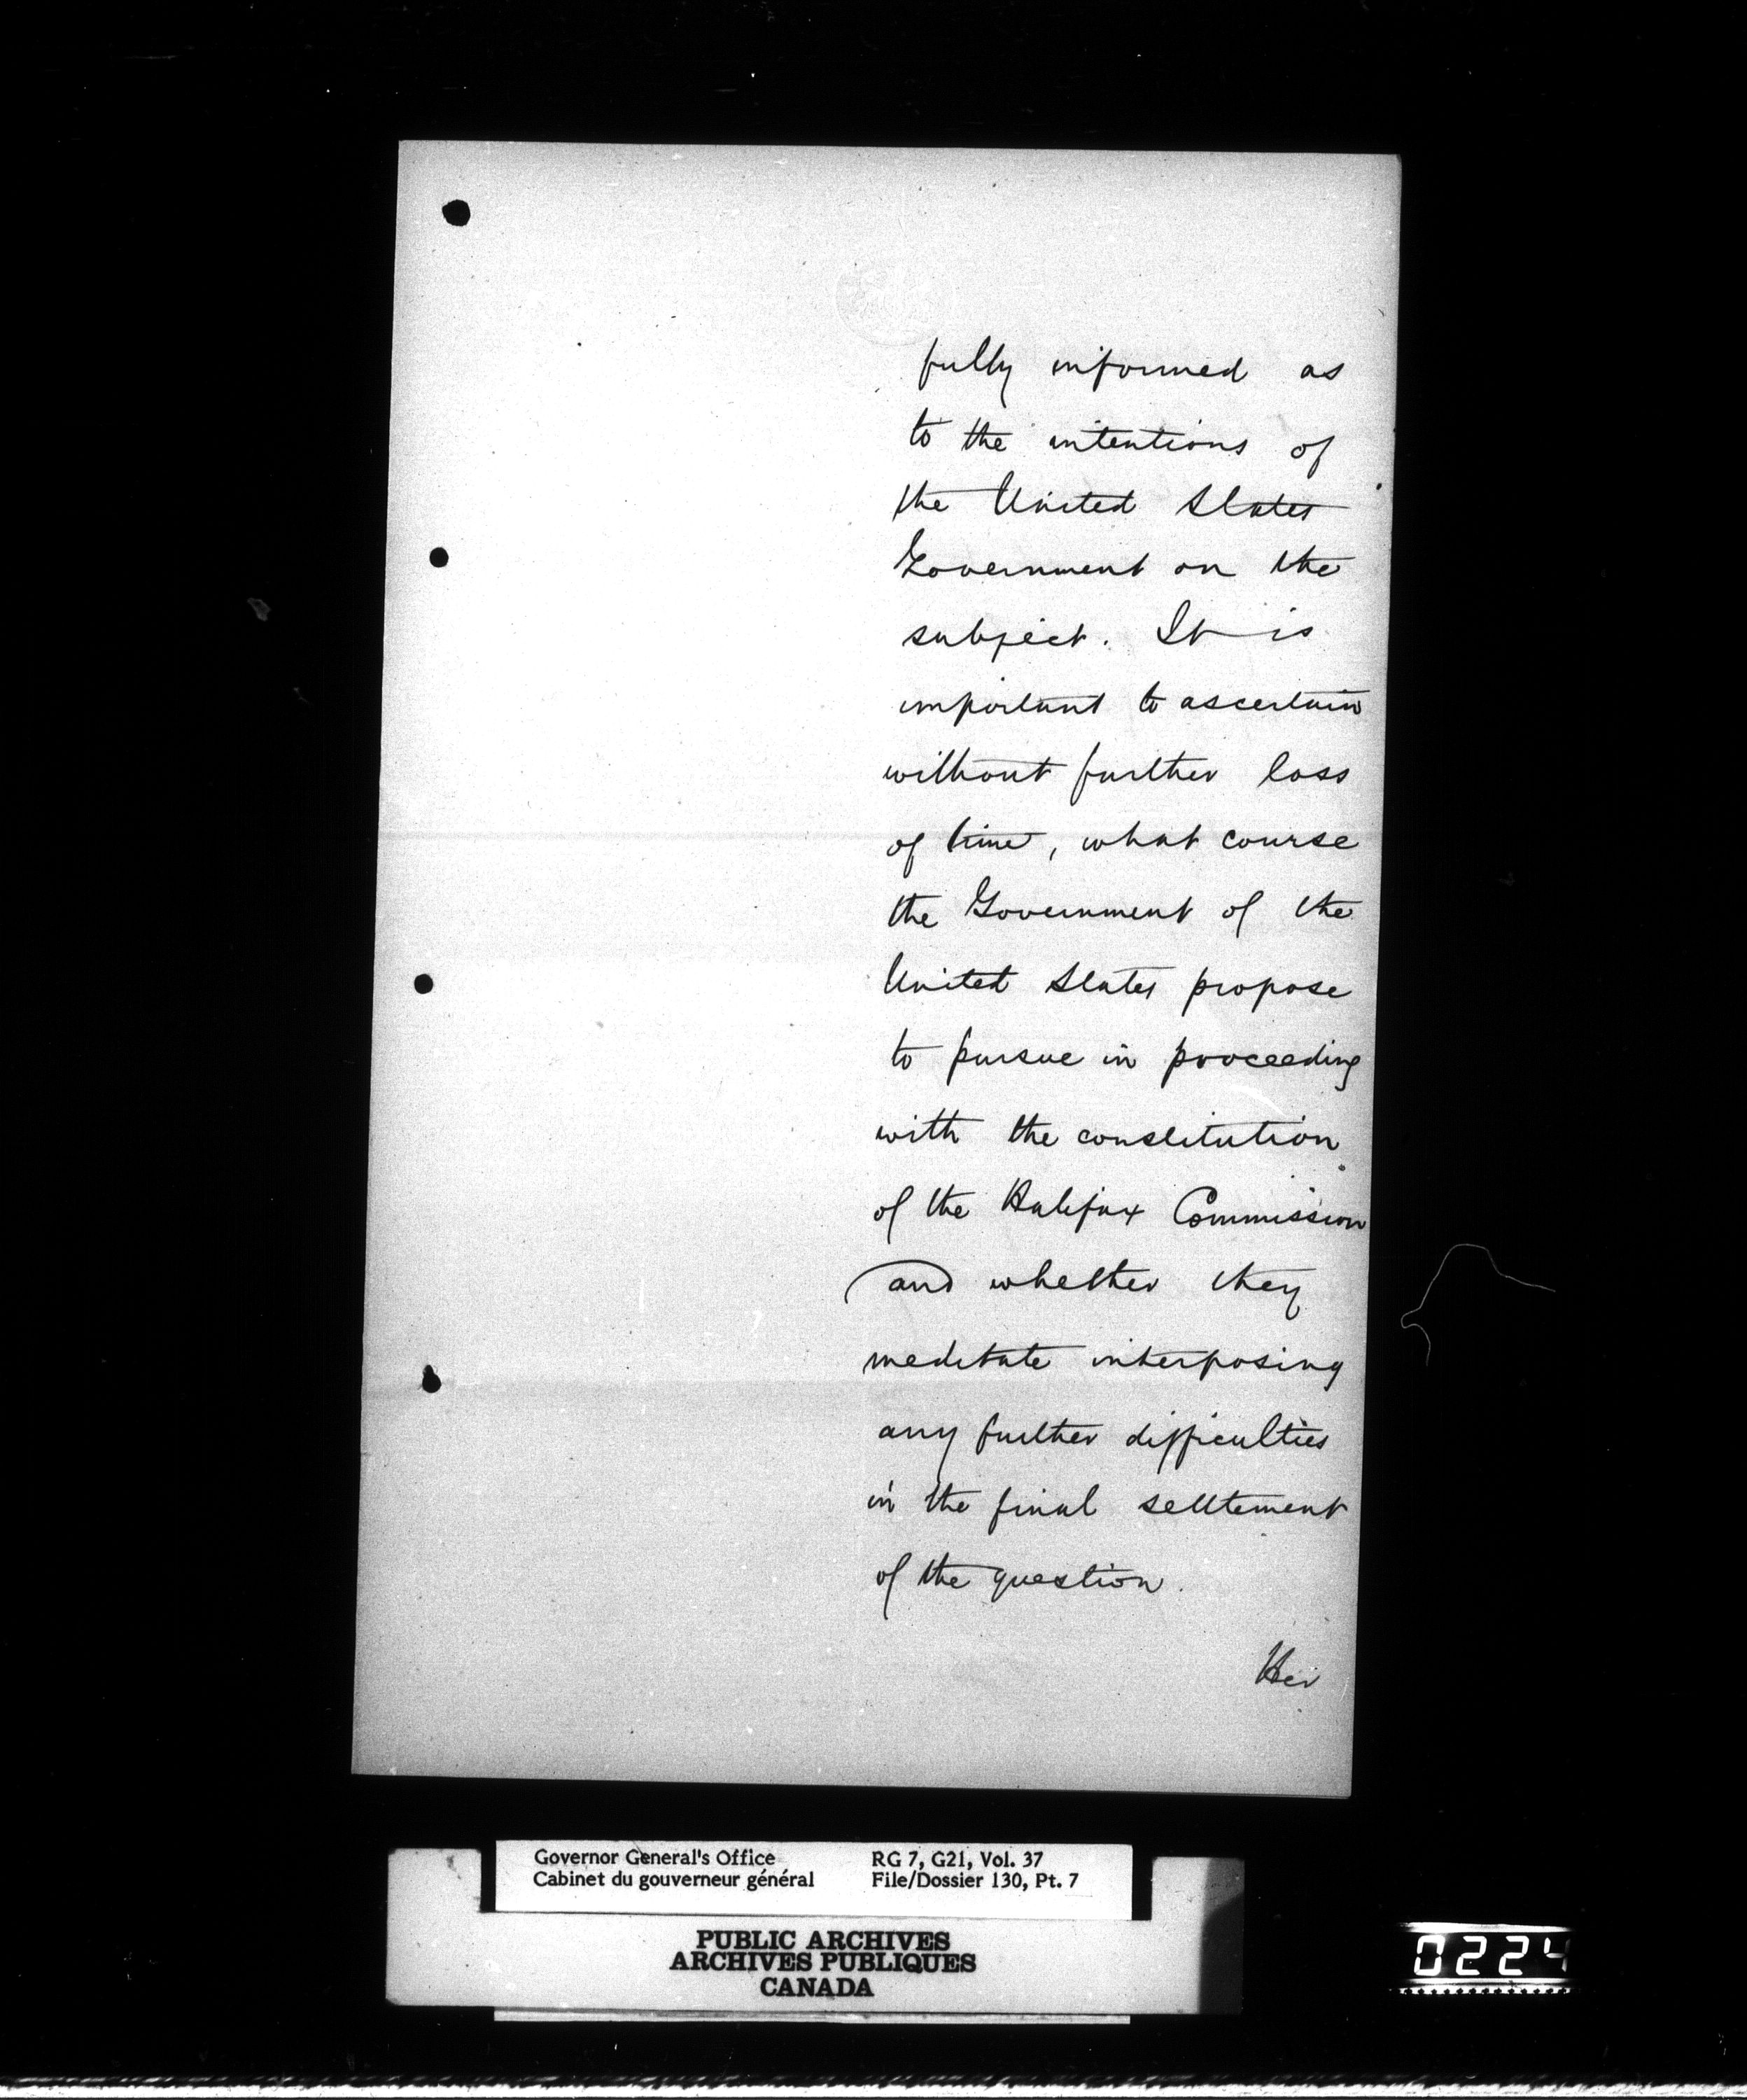 fully informed as
to the intentions of
the United States
Government on the
subject. It is
important to ascertain
without further loss
of time, what course
the Government of the
United States propose
to pursue in proceeding
with the constitution
of the Halifax Commission
and whether they
meditate interposing
any further difficulties
in the final settlement
of the question.
Her
Governor General's Office
Cabinet du gouverneur général
RG 7, G21, Vol. 37
File/Dossier 130, Pt. 7
PUBLIC ARCHIVES
ARCHIVES PUBLIQUES
CANADA
0224